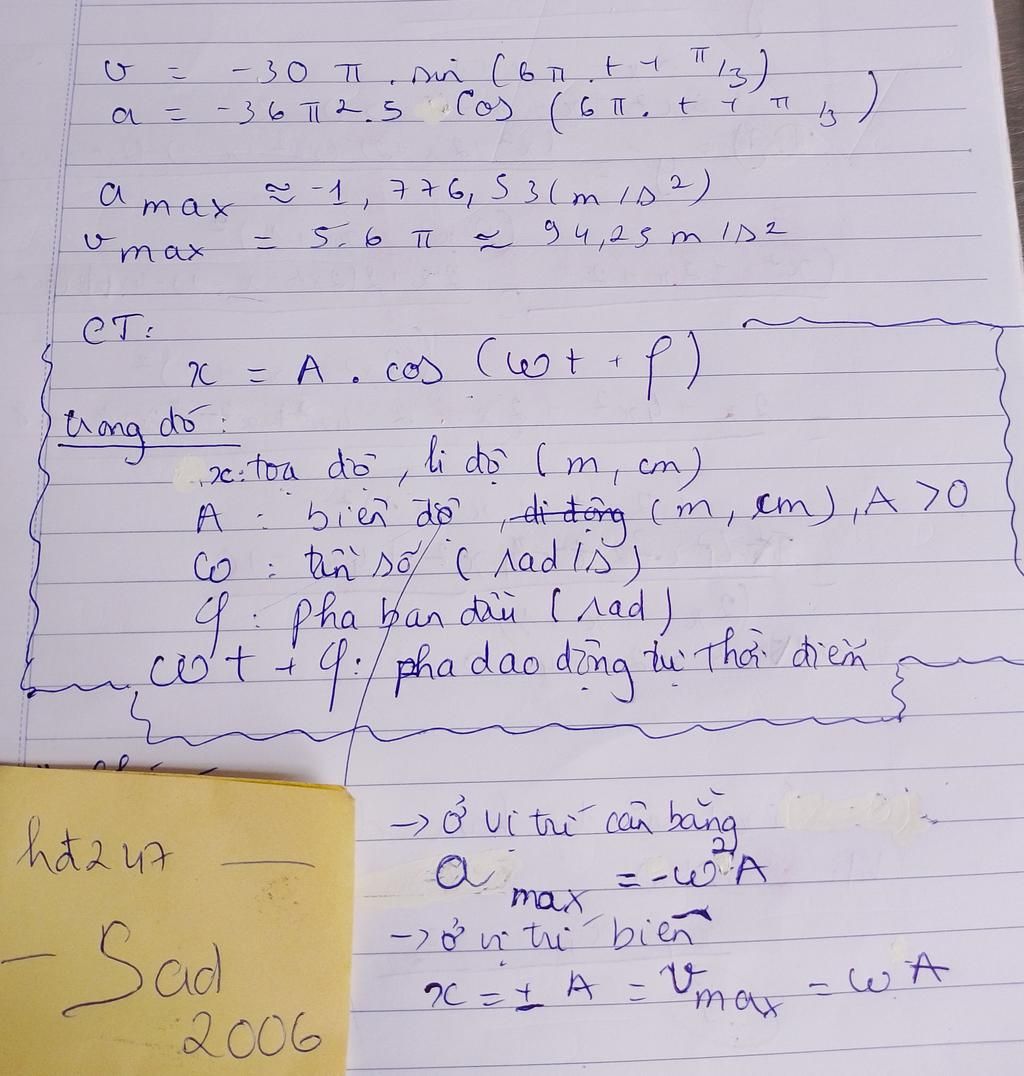 v = -30 π . sin (6π . t + π/3)
a = -36 π 2.5 cos (6π . t + π/3)
a max ≈ -1,776,53 (m/s²)
v max = 5.6 π ≈ 94,25 m/s²
CT:
x = A . cos (ωt + φ)
trong đó:
x: toạ độ, li độ (m, cm)
A : biên độ, di động (m, cm), A > 0
ω : tần số (rad/s)
φ : pha ban đầu (rad)
ωt + φ: pha dao động tại thời điểm
→ ở vị trí cân bằng
a max = -ω²A
→ ở vị trí biên
x = ± A = v max = ωA
hđ247 —
- Sad
2006